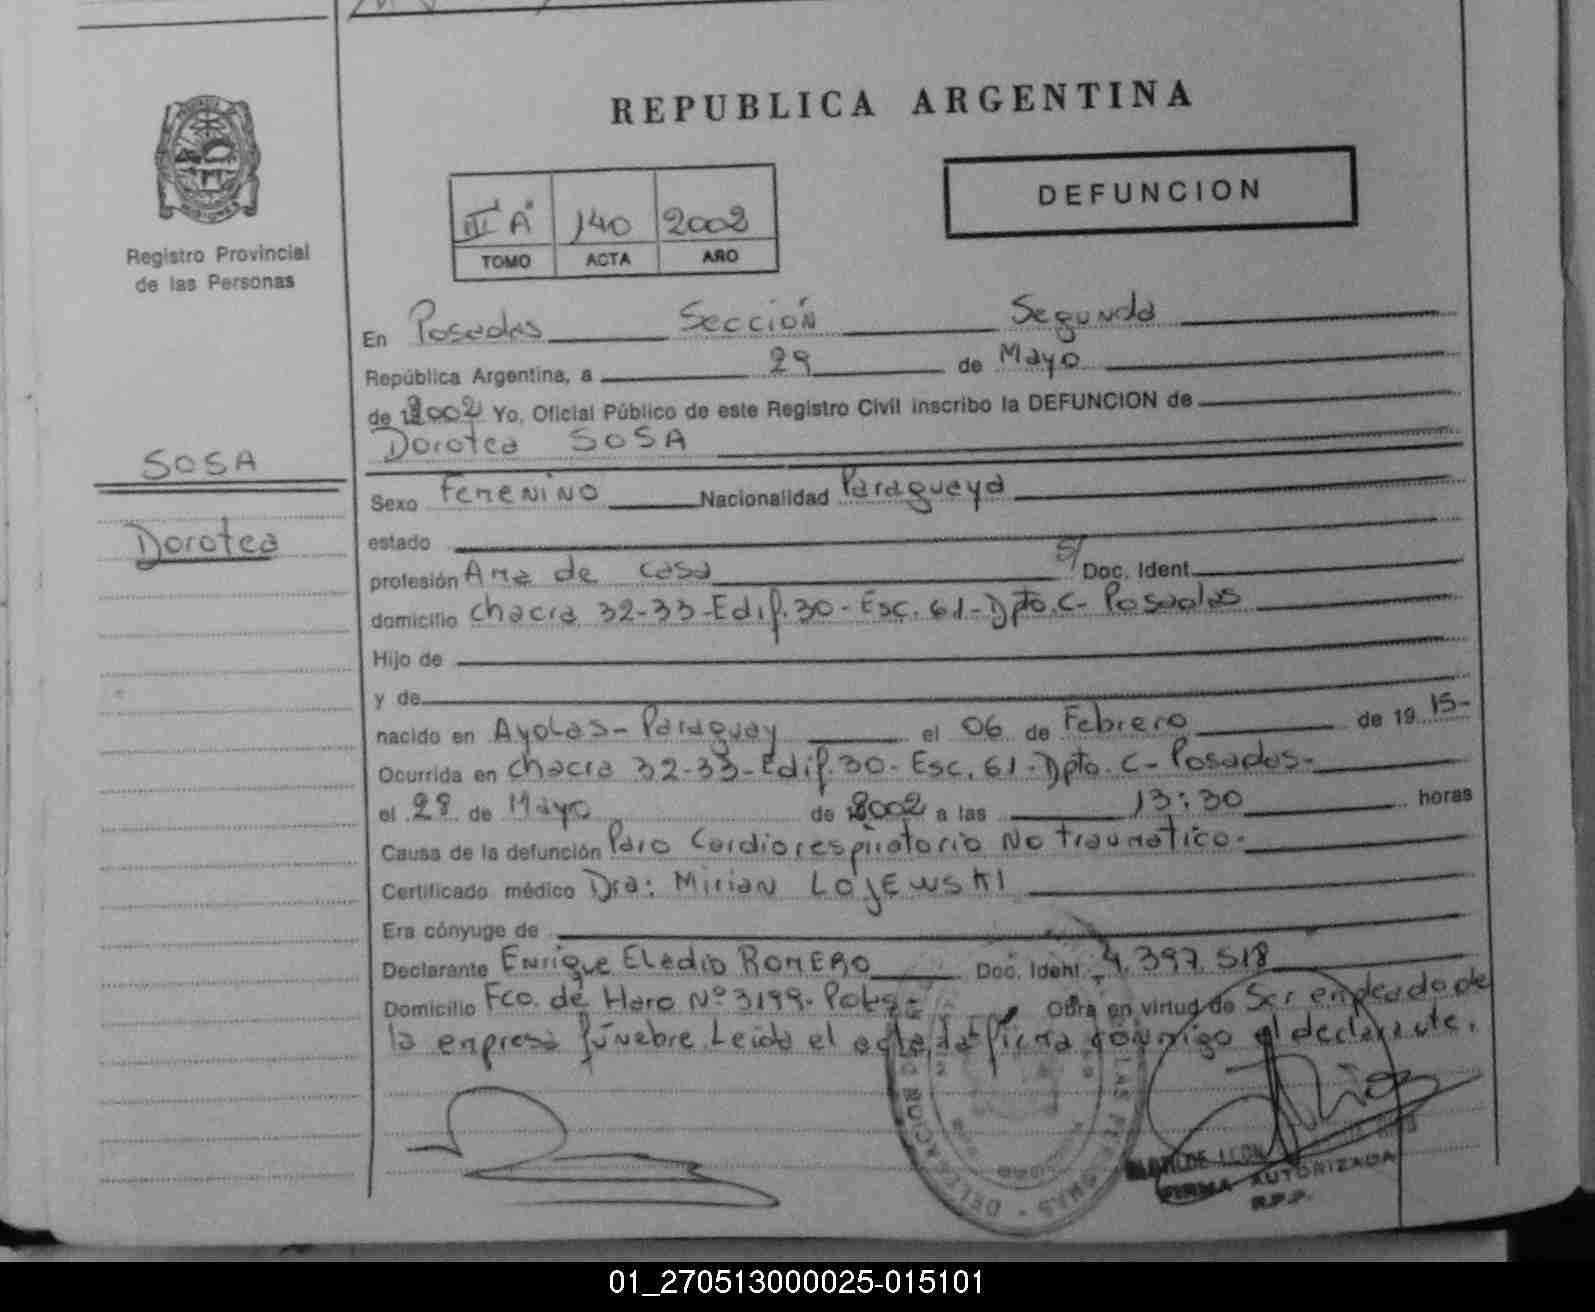 REPUBLICA ARGENTINA
MISIONES
Registro Provincial
de las Personas
DEFUNCION
III "A" 140 2002
TOMO ACTA AÑO
En Posadas Sección Segunda
República Argentina, a 29 de Mayo
de 2002 Yo, Oficial Público de este Registro Civil inscribo la DEFUNCION de
Dorotea SOSA
SOSA
Dorotea
Sexo Femenino Nacionalidad Paraguaya
estado
profesión Ama de casa S/ Doc. Ident.
domicilio chacra 32-33-Edif.30-Esc.61-Dpto.C-Posadas
Hijo de
y de
nacido en Ayolas-Paraguay el 06 de Febrero de 1915-
Ocurrida en chacra 32-33-Edif.30-Esc.61-Dpto.C-Posadas-
el 28 de Mayo de 2002 a las 13:30 horas
Causa de la defunción Paro Cardiorespiratorio No traumático-
Certificado médico Dra: Mirian LOJEWSKI
Era cónyuge de
Declarante Enrique Eladio ROMERO Doc. Ident. 4.397.518
Domicilio Fco. de Haro Nº3199- Obra en virtud de Ser empleado de
la empresa fúnebre. Leída el acta, la firma conmigo el declarante.
FIRMA AUTORIZADA
R.P.P.
01_270513000025-015101